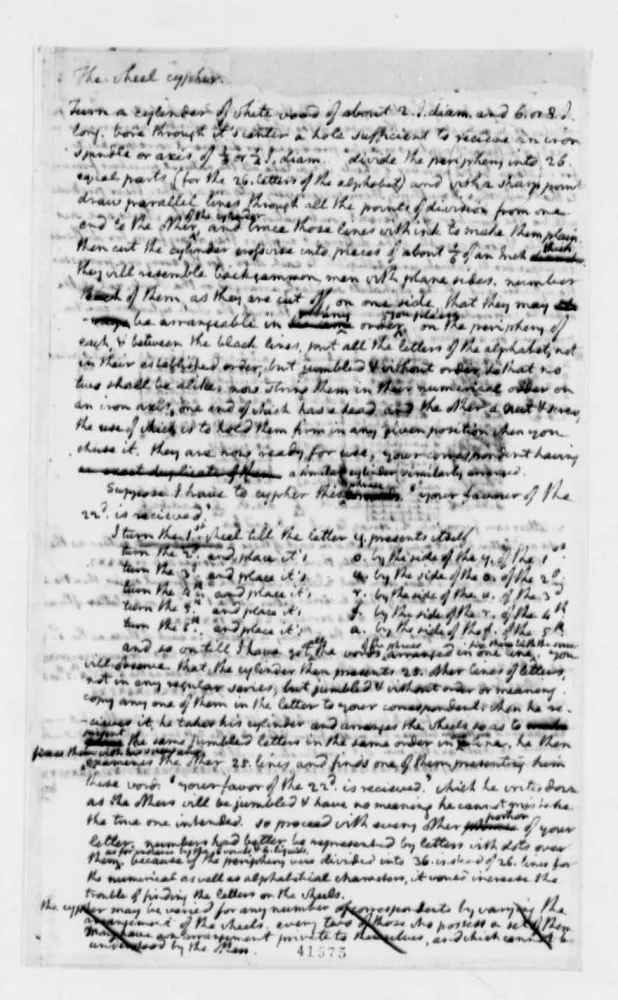 The wheel cypher.
Turn a cylinder of white wood of about 2. I. diam. and 6. or 8. I.
long. bore through it's center a hole sufficient to recieve an iron
spindle or axis of 1/8 or 1/4 I. diam. divide the periphery into 26.
equal parts (for the 26. letters of the alphabet) and with a sharp point
draw parallel lines through all the points of division from one
end to the other of the cylinder, and trace those lines with ink to make them plain.
then cut the cylinder crosswise into pieces of about 1/6 of an Inch thick.
they will resemble backgammon men with plane sides. number
each of them, as they are cut off, on one side, that they may
be arrangeable in any order you please. on the periphery of
each, & between the black lines, put all the letters of the alphabet, not
in their established order, but jumbled & without order, so that no
two shall be alike. now string them in their numerical order on
an iron axis, one end of which has a head, and the other a nut & screw,
the use of which is to hold them firm in any given position when you
chuse it. they are now ready for use, your correspondent having
a similar cylinder similarly arranged.
Suppose I have to cypher this phrase. "your favour of the
22d. is recieved."
I turn the 1st. wheel till the letter y. presents itself
turn the 2d. and place it's o. by the side of the y. of the 1st
turn the 3d. and place it's u. by the side of the o. of the 2d.
turn the 4th. and place it's r. by the side of the u. of the 3d
turn the 5th. and place it's f. by the side of the r. of the 4th
turn the 6th. and place it's a. by the side of the f. of the 5th
and so on till I have got all the words of the phrase arranged in one line. fix them with the screw. you
will observe that the cylinder then presents 25. other lines of letters,
not in any regular series, but jumbled & without order or meaning.
copy any one of them in the letter to your correspondent. when he re-
cieves it, he takes his cylinder and arranges the wheels so as to
present the same jumbled letters in the same order in one line. he then
fixes them with his screw, and examines the other 25. lines and finds one of them presenting him
these words "your favor of the 22d. is recieved." which he writes down
as the others will be jumbled & have no meaning, he cannot mistake
the true one intended. so proceed with every other portion of your
letter. numbers had better be represented by letters with dots over
them, as for instance by the 6 vowels & 4. liquids. because if the periphery were divided into 36. instead of 26. lines for
the numerical as well as alphabetical characters, it would increase the
trouble of finding the letters on the wheels.
the cypher may be varied for any number of correspondents by varying the
arrangement of the wheels. every two of those who possess a set of them
may have an arrangement private to themselves, and which cannot be
understood by the others.
41575